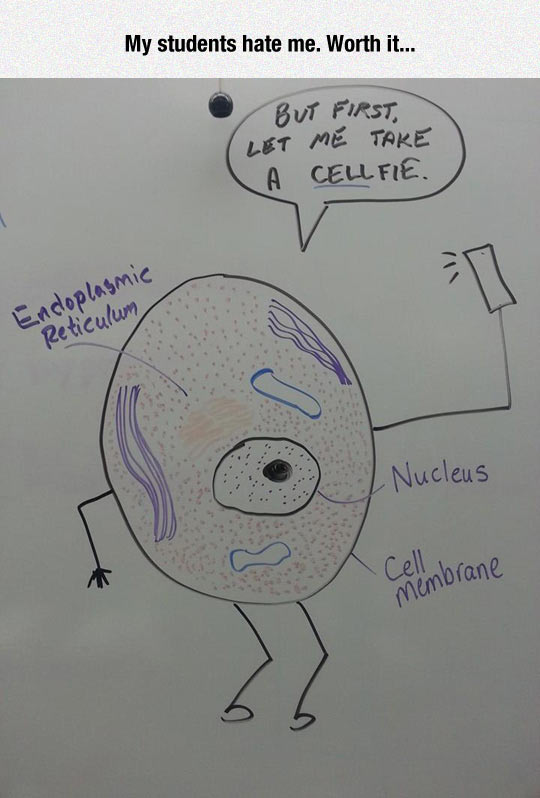 My students hate me. Worth it...
BUT FIRST,
LET ME TAKE
A CELLFIE.
Endoplasmic
Reticulum
Nucleus
Cell
membrane